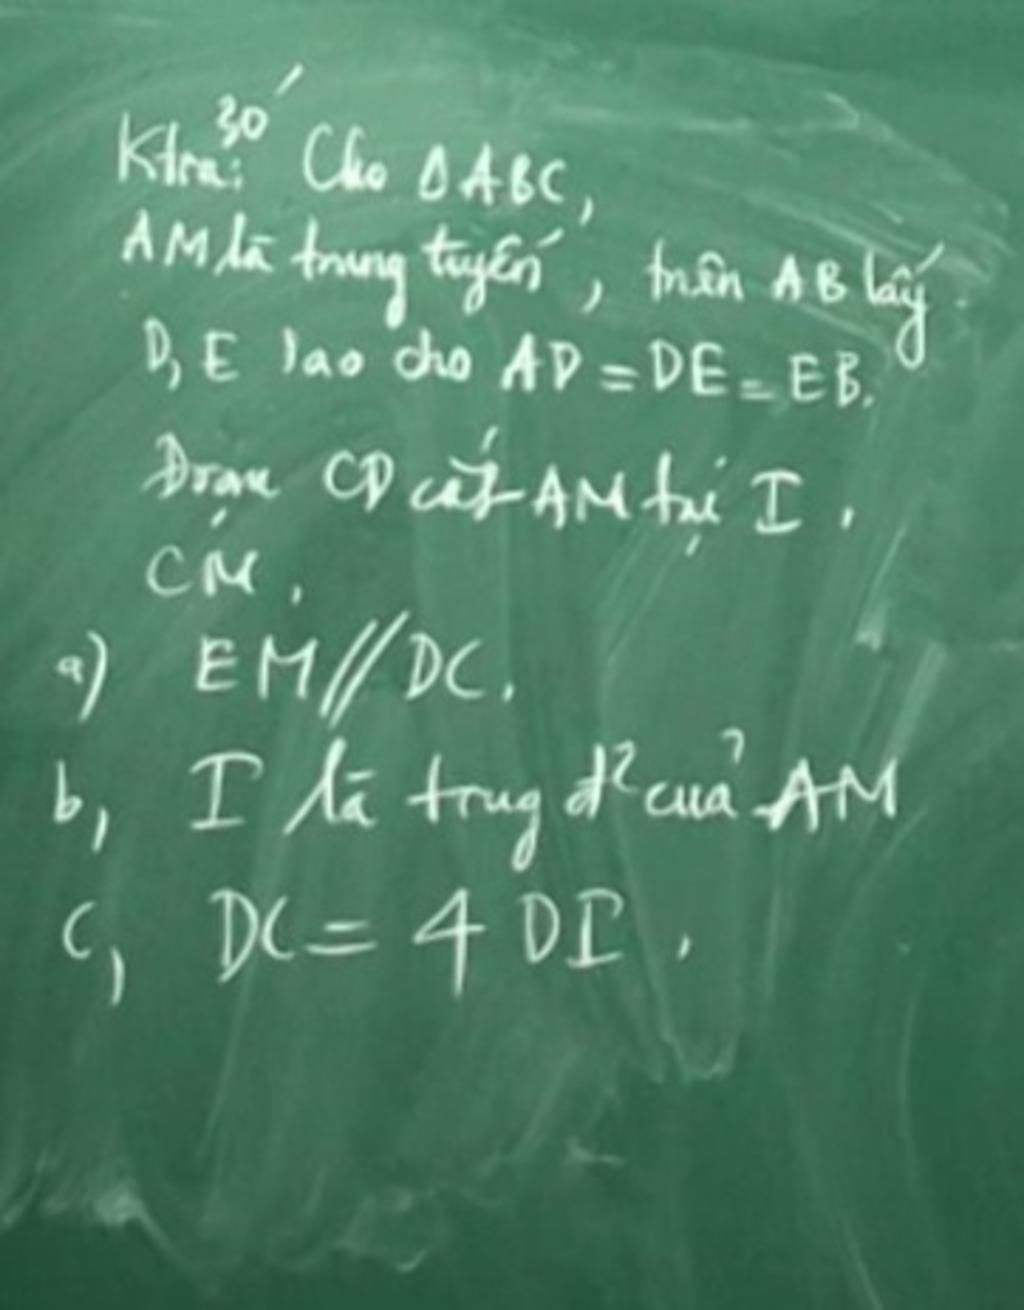 Ktra: 30'
Cho ΔABC,
AM là trung tuyến, trên AB lấy
D, E sao cho AD = DE = EB.
Đoạn CD cắt AM tại I.
CM.
a) EM // DC.
b, I là trug đ² của AM
c, DC = 4 DI.